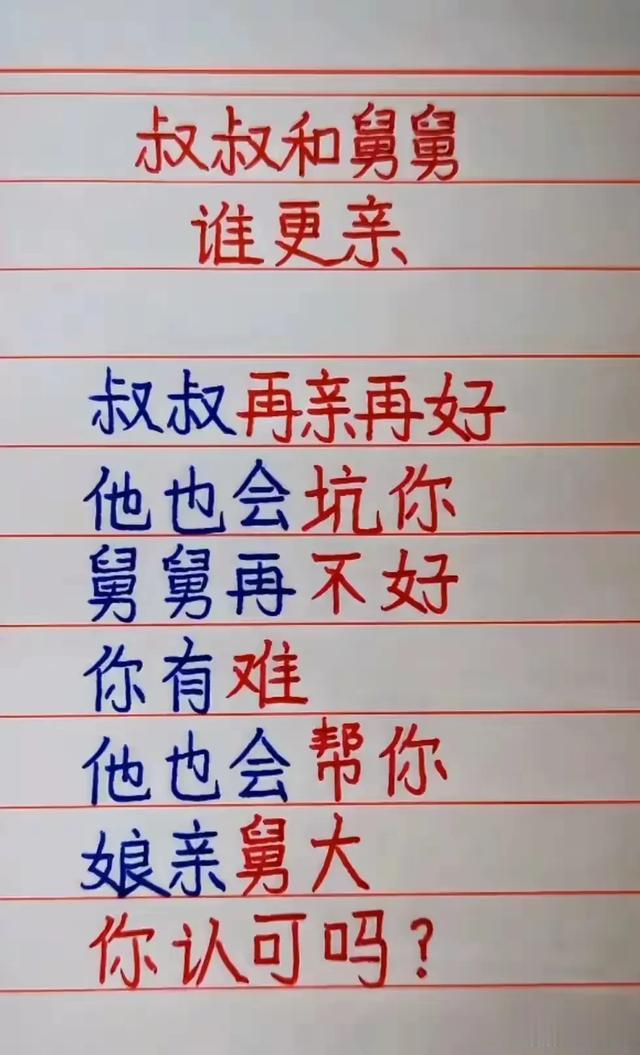 叔叔和舅舅
谁更亲
叔叔再亲再好
他也会坑你
舅舅再不好
你有难
他也会帮你
娘亲舅大
你认可吗?